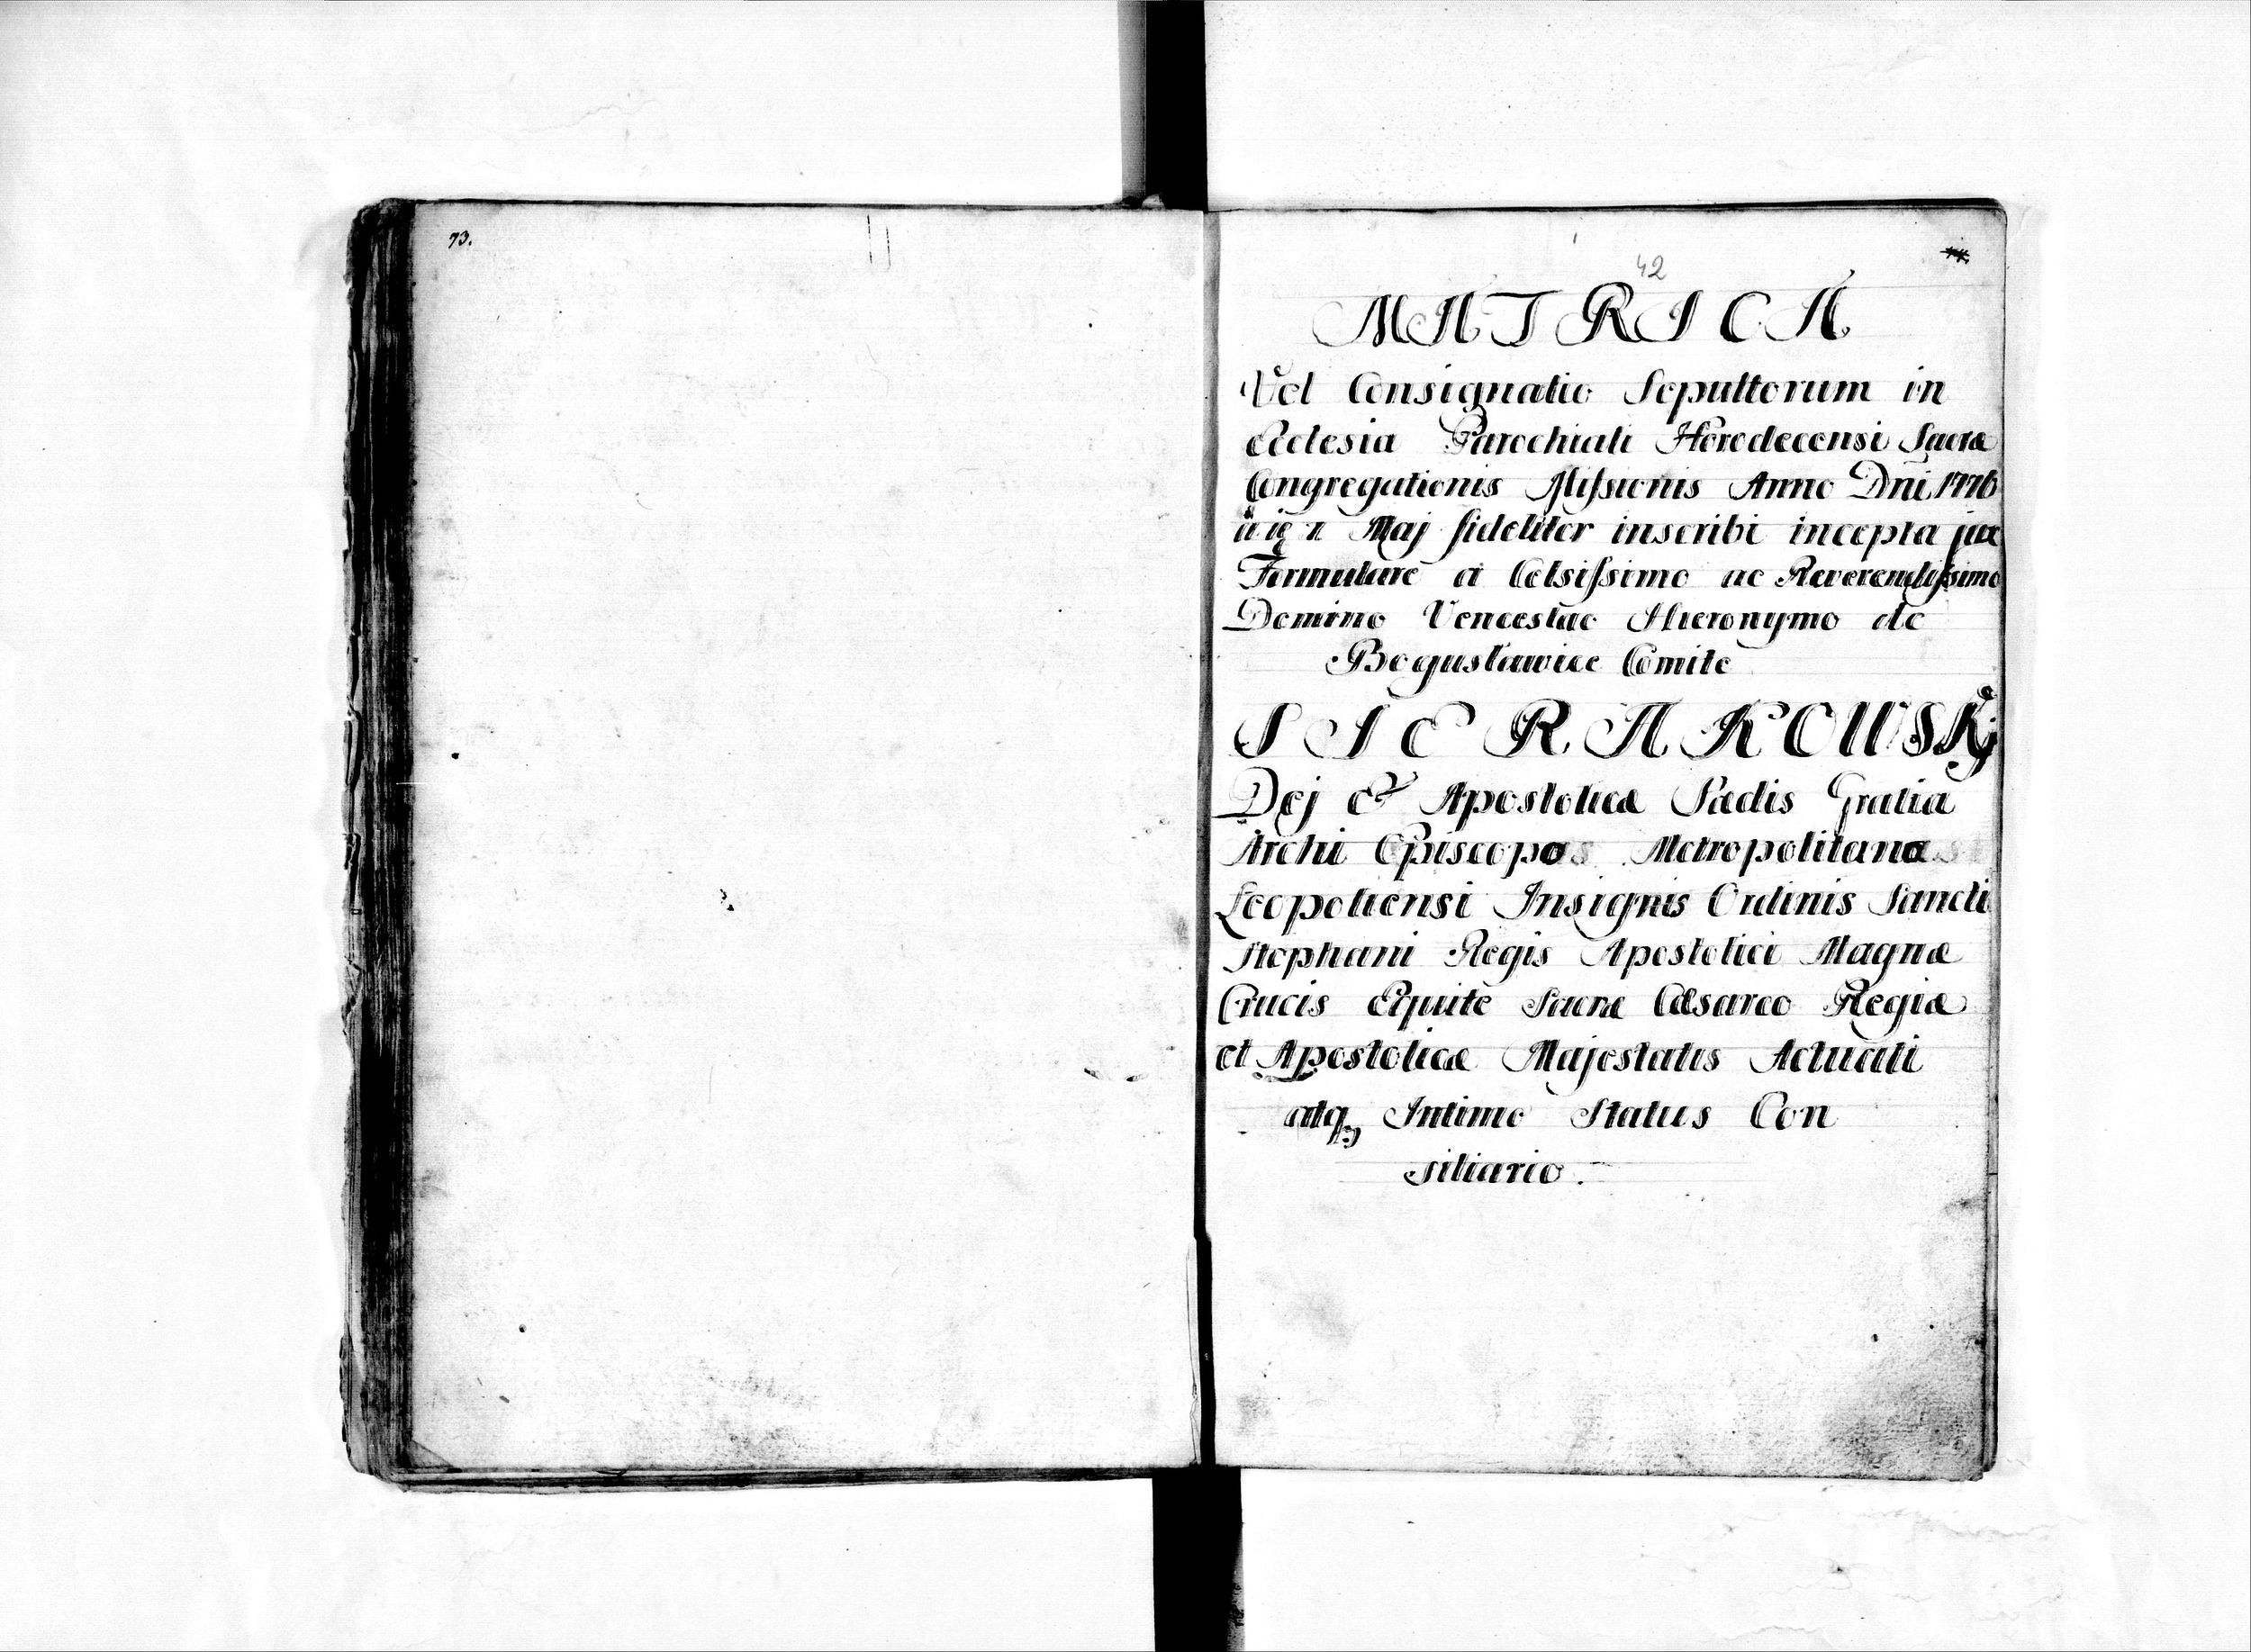 73.
42
MATRICA
Vel Consignatio Sepultorum in
Eclesia Parochiali Horodecensi Sacræ
Congregationis Missionis Anno Dni 1776
Maj fideliter inscribi incepta jux
Formulare a Celsissimo ac Reverendissimo
Domino Venceslao Hieronymo de
Bogusławice Comite
SIERAKOWSKj
Dej & Apostolicæ Sædis Gratia
Archi Episcopo Metropolitano
Leopoliensi Insignis Ordinis Sancti
Stephani Regis Apostolici Magnæ
Crucis Equite Sacræ Cæsareo Regiæ
et Apostolicæ Majestatis Actuali
atq, Intimo Status Con
siliario.